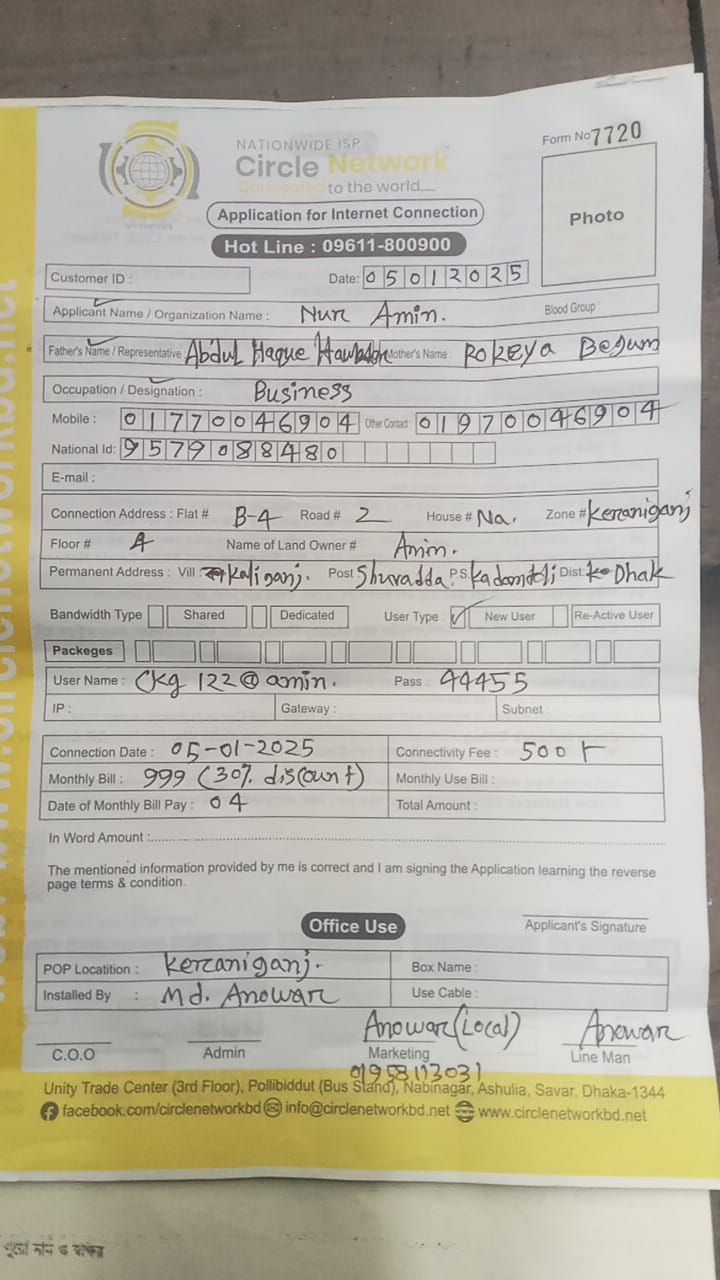 NATIONWIDE ISP
Circle Network
Connected to the world....
Form No 7720
Application for Internet Connection
Photo
Hot Line : 09611-800900
Customer ID : Date: 05012025
Applicant Name / Organization Name : Nur Amin. Blood Group :
Father's Name / Representative : Abdul Haque Mother's Name : Rokeya Begum
Occupation / Designation : Business
Mobile : 01770046904 Other Contact : 01970046904
National Id: 9579088480
E-mail :
Connection Address : Flat # B-4 Road # 2 House # Na. Zone # Keraniganj
Floor # 4 Name of Land Owner # Amin.
Permanent Address : Vill : Kaliganj. Post Shuvadda P.S. Kadomtoli Dist: Dhak
Bandwidth Type Shared Dedicated User Type : ✓ New User Re-Active User
Packeges
User Name : Ckg 122@amin. Pass : 44455
IP : Gateway : Subnet :
Connection Date : 05-01-2025 Connectivity Fee : 500
Monthly Bill : 999 (30% discount) Monthly Use Bill :
Date of Monthly Bill Pay : 04 Total Amount :
In Word Amount :
The mentioned information provided by me is correct and I am signing the Application learning the reverse
page terms & condition.
Office Use
Applicant's Signature
POP Locatition : Keraniganj. Box Name :
Installed By : Md. Anowar Use Cable :
Anowar (Local) Anowar
C.O.O Admin Marketing Line Man
01958113031
Unity Trade Center (3rd Floor), Pollibiddut (Bus Stand), Nabinagar, Ashulia, Savar, Dhaka-1344
facebook.com/circlenetworkbd info@circlenetworkbd.net www.circlenetworkbd.net